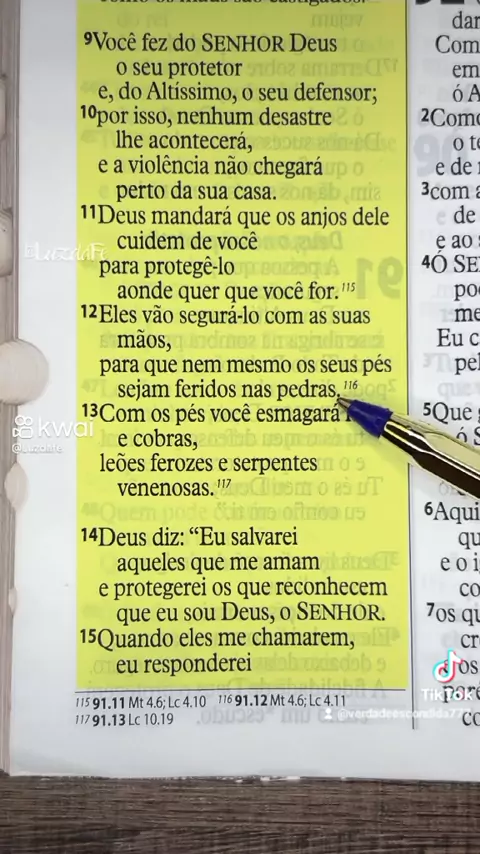 como os maus são castigados.
9Você fez do SENHOR Deus
o seu protetor
e, do Altíssimo, o seu defensor;
10por isso, nenhum desastre
lhe acontecerá,
e a violência não chegará
perto da sua casa.
11Deus mandará que os anjos dele
cuidem de você
para protegê-lo
aonde quer que você for.115
12Eles vão segurá-lo com as suas
mãos,
para que nem mesmo os seus pés
sejam feridos nas pedras.116
13Com os pés você esmagará
e cobras,
leões ferozes e serpentes
venenosas.117
14Deus diz: “Eu salvarei
aqueles que me amam
e protegerei os que reconhecem
que eu sou Deus, o SENHOR.
15Quando eles me chamarem,
eu responderei
115 91.11 Mt 4.6; Lc 4.10 116 91.12 Mt 4.6; Lc 4.11
117 91.13 Lc 10.19
dar
Com
em
ó A
2Como
o te
e de
3com a
de
e ao
4Ó SE
po
me
Eu c
pel
5Que
ó S
6Aqui
qu
e o i
co
7os qu
cr
co
kwai
TikTok